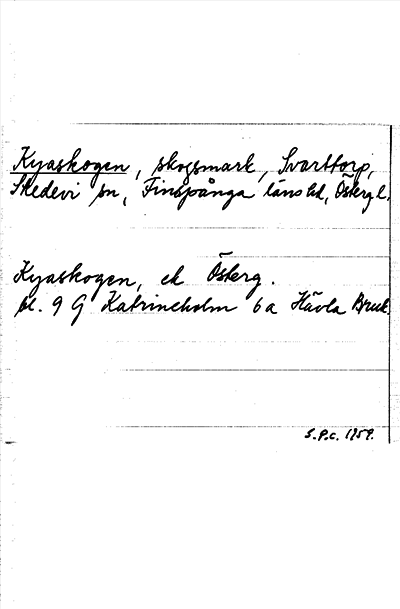 Kyaskogen, skogsmark, Svarttorp,
Skedevi sn, Finspånga länsbd, Östergl.
Kyaskogen, ek Österg.
bl. 9 G Katrineholm 6a Hävla Bruk
S.P.c. 1959.